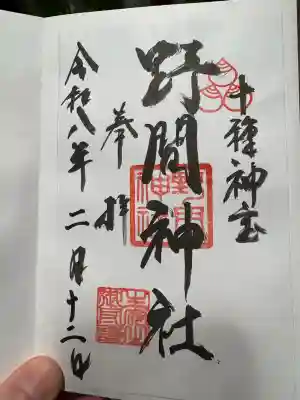 十種神宝
野間神社
奉拝
令和八年二月十二日